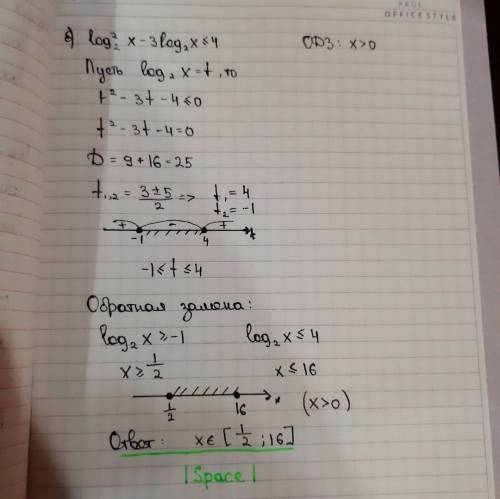 PAGE
OFFICE STYLE
б) log₂² x - 3log₂x ≤ 4 ОДЗ: x>0
Пусть log₂ x = t, то
t² - 3t - 4 ≤ 0
t² - 3t - 4 = 0
D = 9 + 16 = 25
t₁,₂ = (3 ± 5)/2 => t₁ = 4
t₂ = -1
+ - +
-1 4 t
-1 ≤ t ≤ 4
Обратная замена:
log₂ x ≥ -1 log₂ x ≤ 4
x ≥ 1/2 x ≤ 16
1/2 16 x (x>0)
Ответ: x ∈ [1/2 ; 16]
|Space|